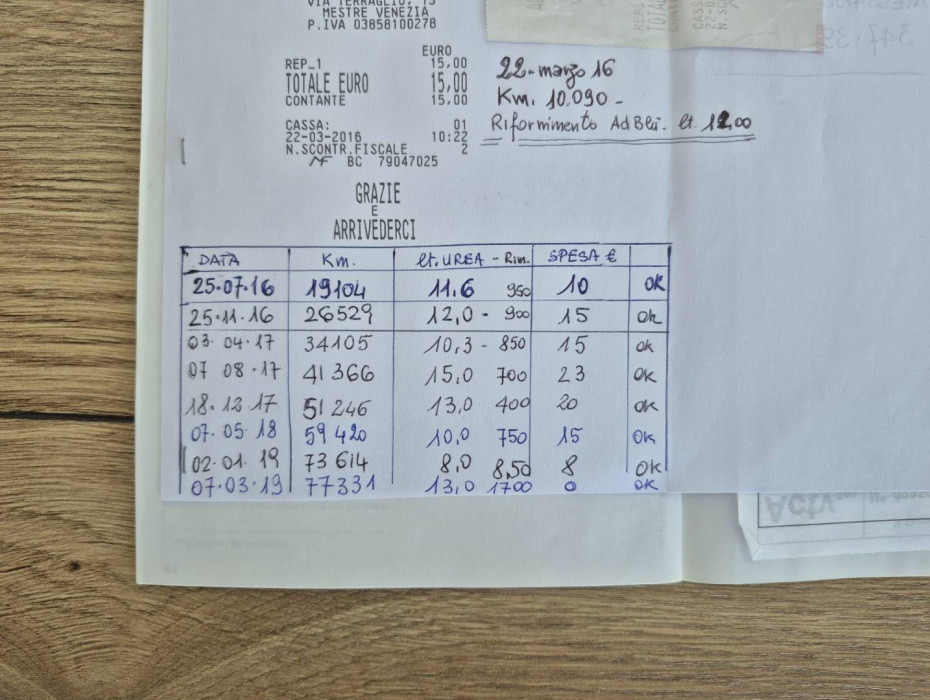 VIA TERRAGLIO, 13
MESTRE VENEZIA
P.IVA 03858100278
EURO
REP_1 15,00
TOTALE EURO 15,00
CONTANTE 15,00
CASSA: 01
22-03-2016 10:22
N.SCONTR.FISCALE 2
MF BC 79047025
GRAZIE
E
ARRIVEDERCI
22-marzo 16
Km. 10.090-
Rifornimento AdBlu. lt. 12,00
DATA Km. lt. UREA - Rim. SPESA €
25.07.16 19104 11.6 950 10 OK
25.11.16 26529 12,0 - 900 15 OK
03.04.17 34105 10,3 - 850 15 OK
07 08.17 41366 15,0 700 23 OK
18.12.17 51246 13,0 400 20 OK
07.05.18 59420 10,0 750 15 OK
02.01.19 73614 8,0 8,50 8 OK
07.03.19 77331 13,0 1700 0 OK
347.39
Actv